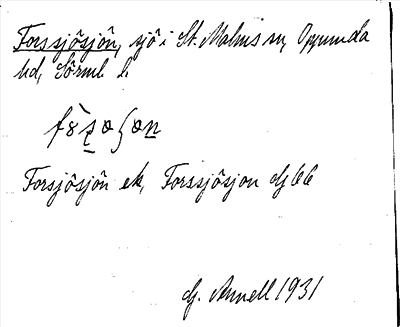 Forssjösjön, sjö i St. Malms sn, Oppunda
hd, Sörml. l.
Forsjösjön ek, Forssjösjon dg 66
1931